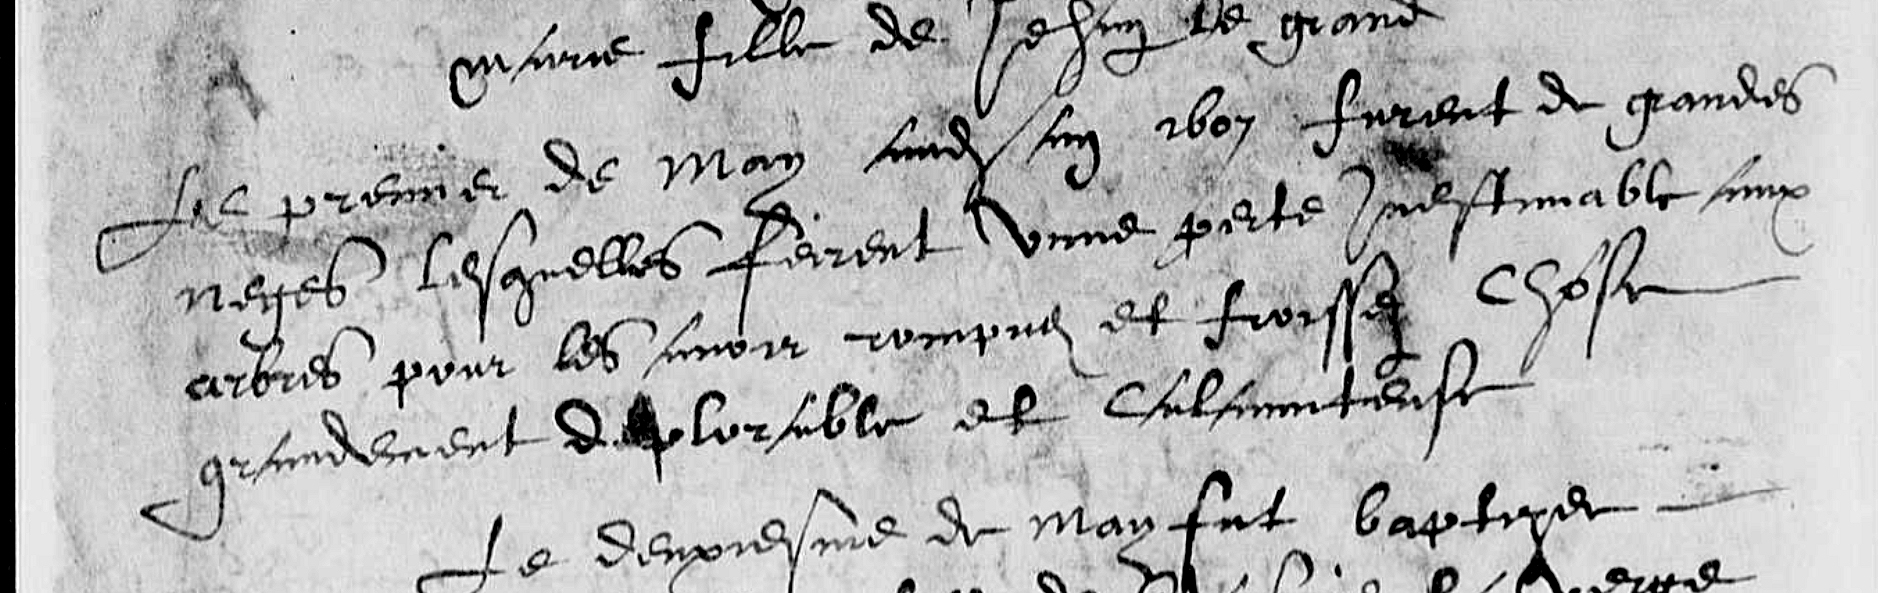 Marie fille de Jehan le grand
Le premier de May audit an 1607 furent de grandes
neges lesquelles feirent vnne perte Inestimable aux
arbres pour les auoir rompus et froissez Chose
grandement deplorable et Calamiteuse
Le deuxiesme de May fut baptizee